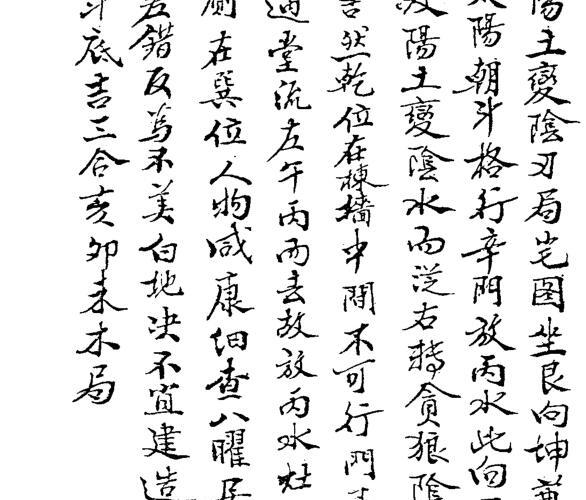 陽土變陰刃局宅图坐艮向坤兼
太陽朝斗格行辛門放丙水此向
陽土變陰水而從右轉貪狼陰
言然乾位在棟墻中間不可行門
通堂流左午丙而去故放丙水灶
厠在巽位人物咸康细查八曜居
差錯反為不美白地决不宜建造
斗底吉三合亥卯未木局